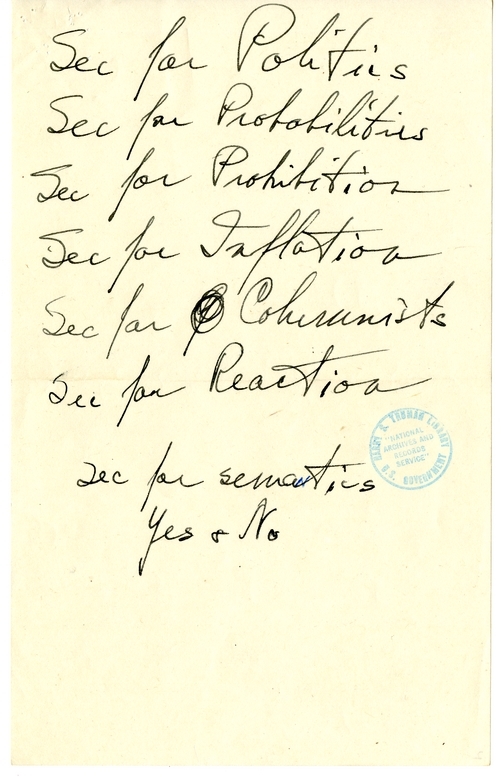 Sec for Politics
Sec for Probabilities
Sec for Prohibition
Sec for Inflation
Sec for Columnists
Sec for Reaction
HARRY S. TRUMAN LIBRARY
"NATIONAL
ARCHIVES AND
RECORDS
SERVICE"
U.S. GOVERNMENT
Sec for semantics
Yes & No